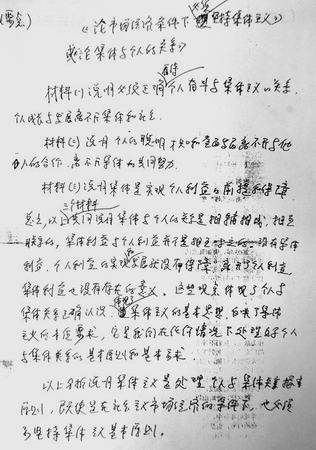 (要点)
《论市场经济条件下 坚持集体主义》
或论集体与个人的关系》
材料(1)说明 处理 个人 与集体主义的关系,
个人 离不开集体和社会。
材料(2)说明 个人的聪明才 离不开与他
人的合作,离不开集体的共同努力。
材料(3)说明集体是实现个人利益的前提和保障
三个材料
总之,以上 共同说明集体与个人的关系是相辅相成,相互
联系的,集体利益与个人利益 没有集体
利益,个人利益的实现 就没有保障, 个人利益,
集体利益也没有存在的意义。这些观点体现了个人与
集体关系正确认识, 集体主义的基本思想, 集体
主义的本质要求,它是我们在任何情况下处理好个人
与集体关系的基本原则和基本要求。
以上分析说明集体主义是处理个人与集体关系
原则,既使是在社会主义市场经济的条件下,也必须
坚持集体主义基本原则。